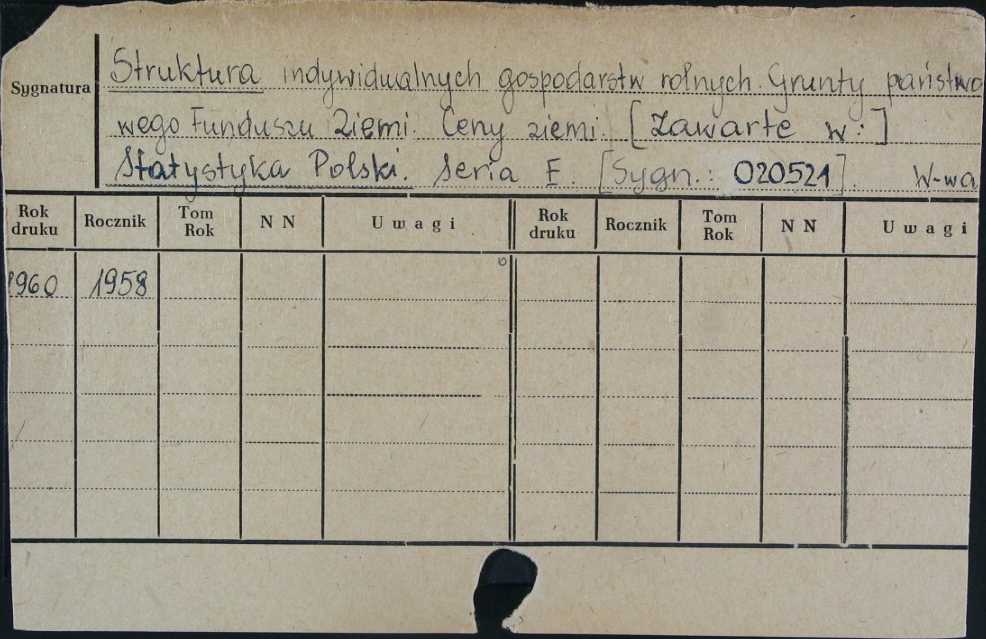 Sygnatura
Struktura indywidualnych gospodarstw rolnych. Grunty państwo
wego Funduszu Ziemi. Ceny ziemi. [Zawarte w:]
Statystyka Polski. Seria E. [Sygn.: 020521]. W-wa
Rok druku Rocznik Tom Rok NN Uwagi Rok druku Rocznik Tom Rok NN Uwagi
1960 1958